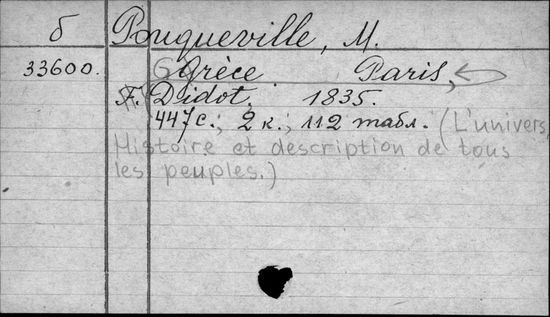 б Pouqueville, M.
33600. Grèce Paris,
F. Didot. 1835.
447 с.; 2 к.; 112 табл. (L'univers,
Histoire et description de tous
les peuples.)